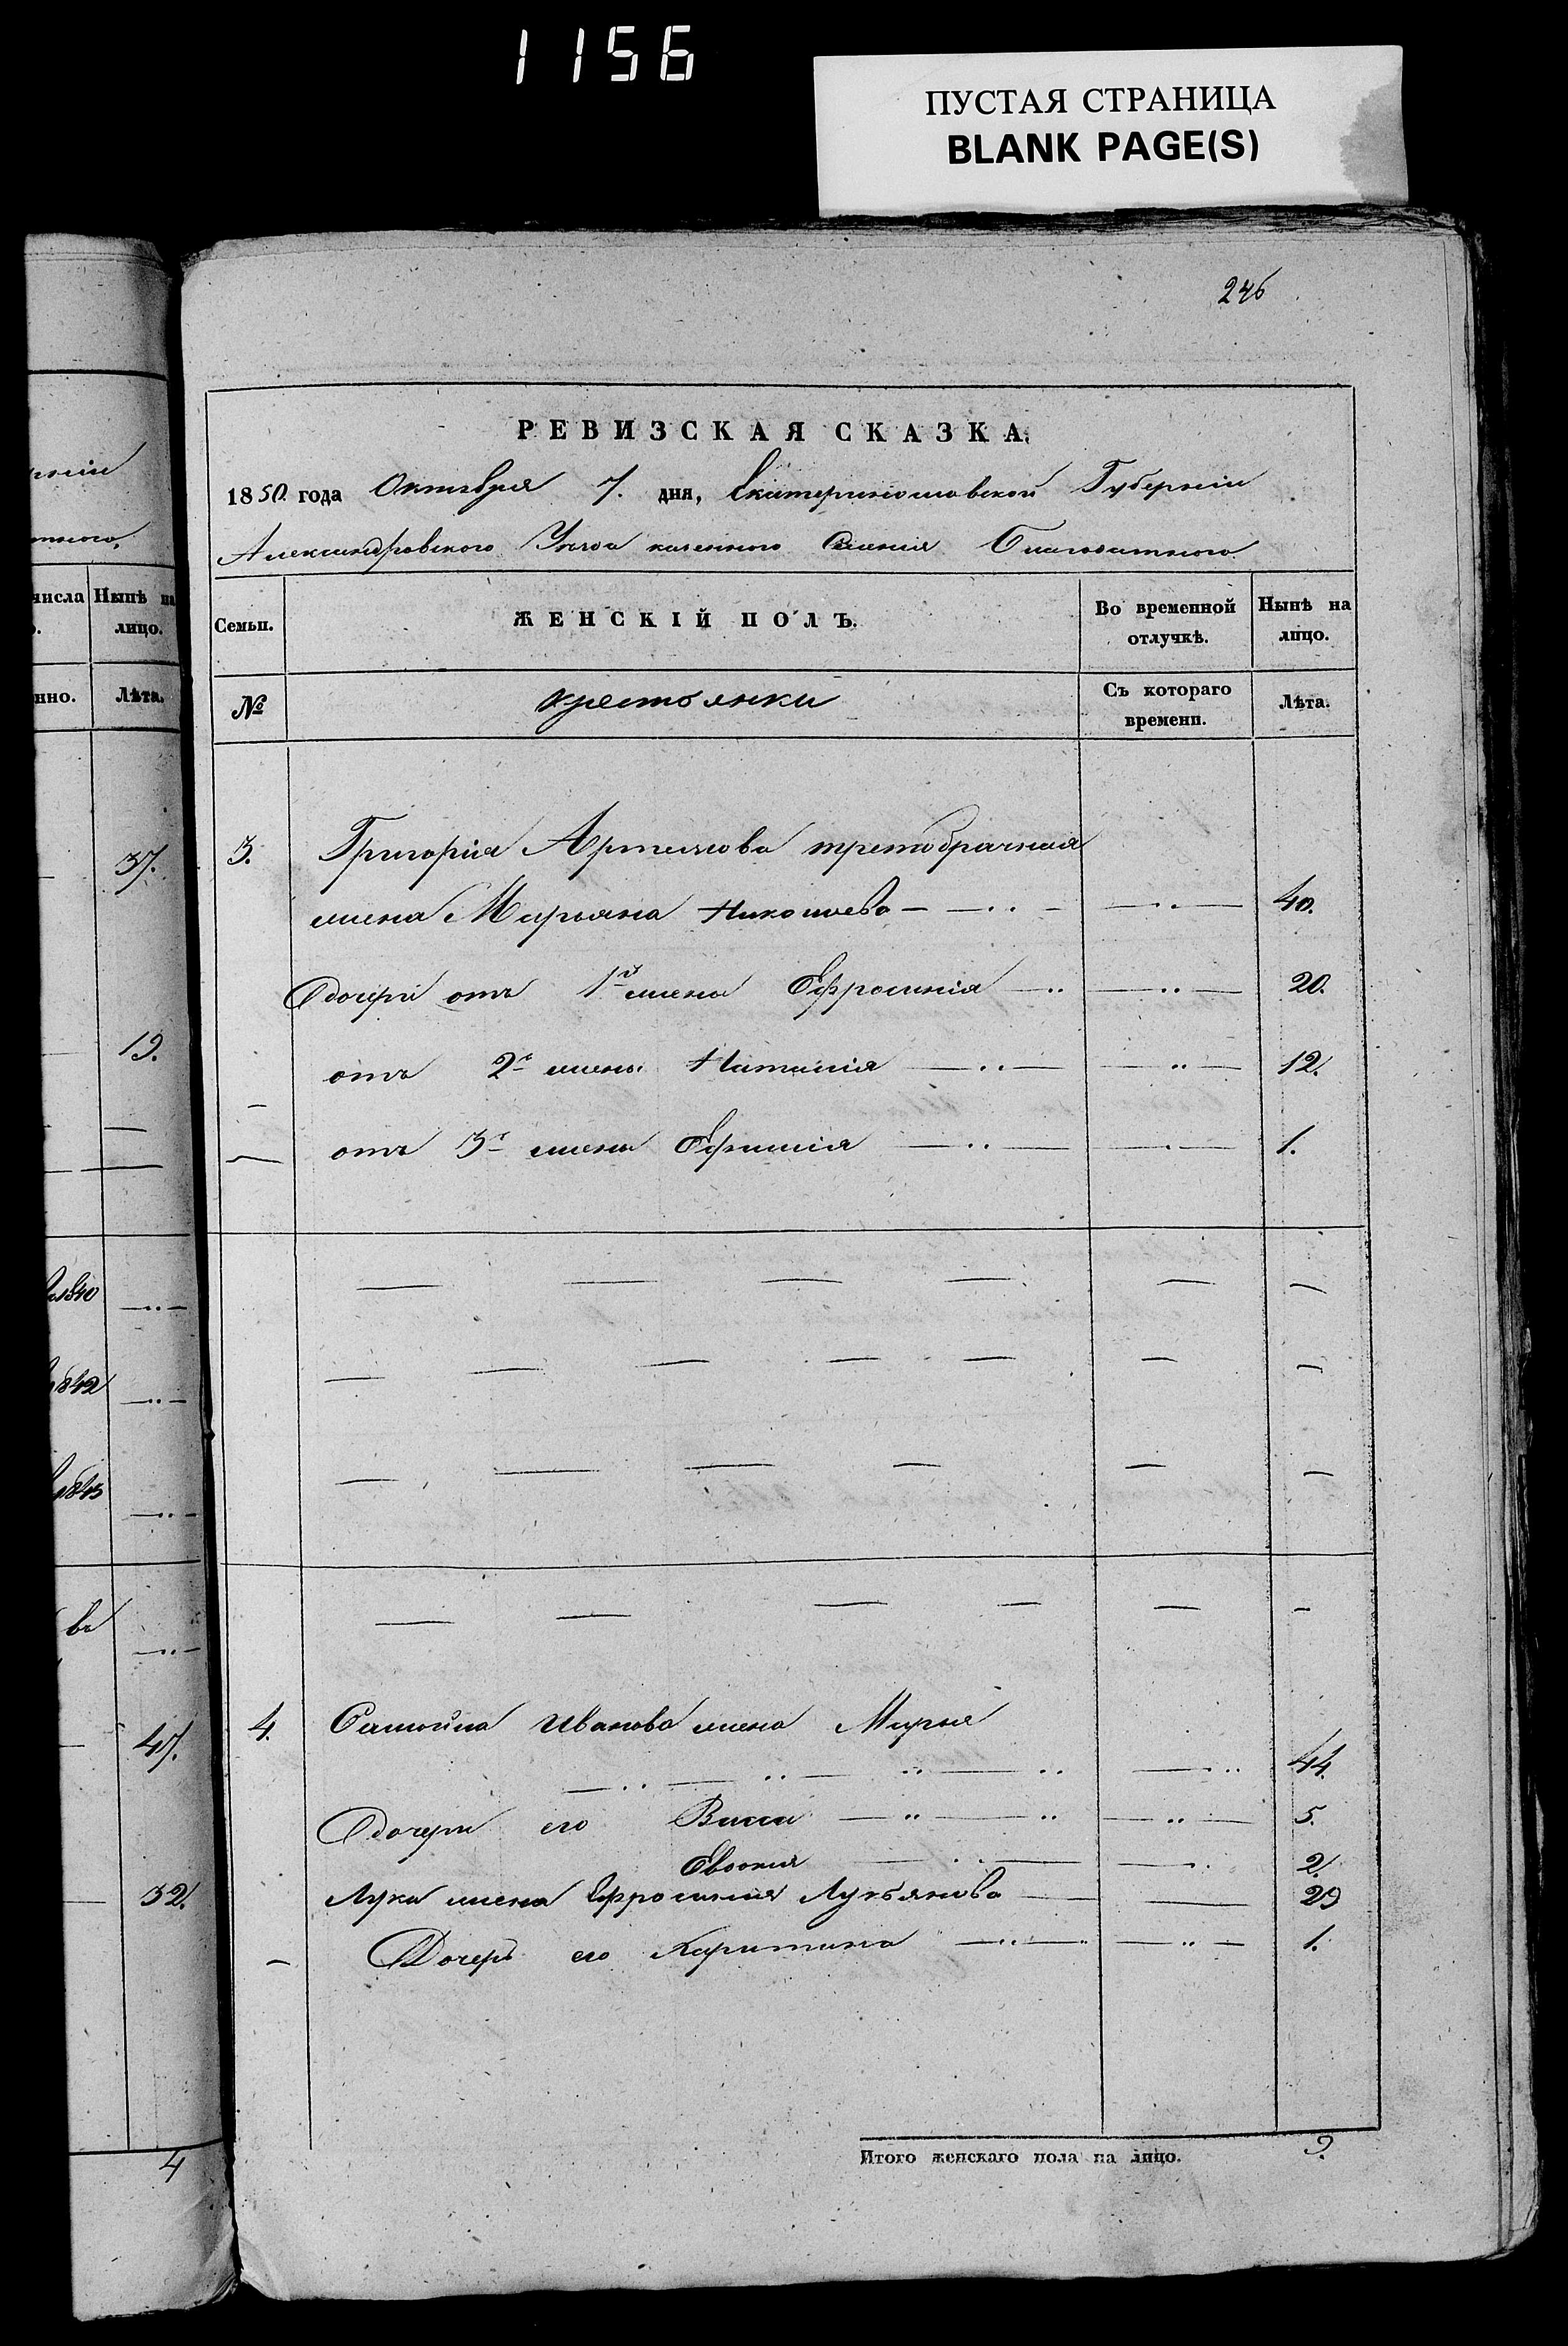 1156
ПУСТАЯ СТРАНИЦА
BLANK PAGE(S)
246
РЕВИЗСКАЯ СКАЗКА.
1850. года Октября 7. дня, Екатеринославской Губерніи
Александровского Уезда казенного Селенія Благодатного
Семьи. ЖЕНСКІЙ ПОЛЪ. Во временной отлучкѣ. Нынѣ на лицо.
№ крестьянки Съ котораго времени. Лѣта.
3. Григорія Артемова третобрачная
жена Марьяна Николаева — 40.
Дочери отъ 1й жены Ефросинія — 20.
отъ 2й жены Наталія — 12.
отъ 3й жены Ефимія — 1.
4. Самойла Иванова жена Марья
44.
Дочери его Васса — 5.
Евдокия — 2.
Луки жена Ефросинія Лукьянова — 29
Дочерь его Харитина — 1.
Итого женскаго пола на лицо. 9.
числа Нынѣ на лицо.
Лѣта.
37.
19.
1840
1842
1843
47.
32.
4